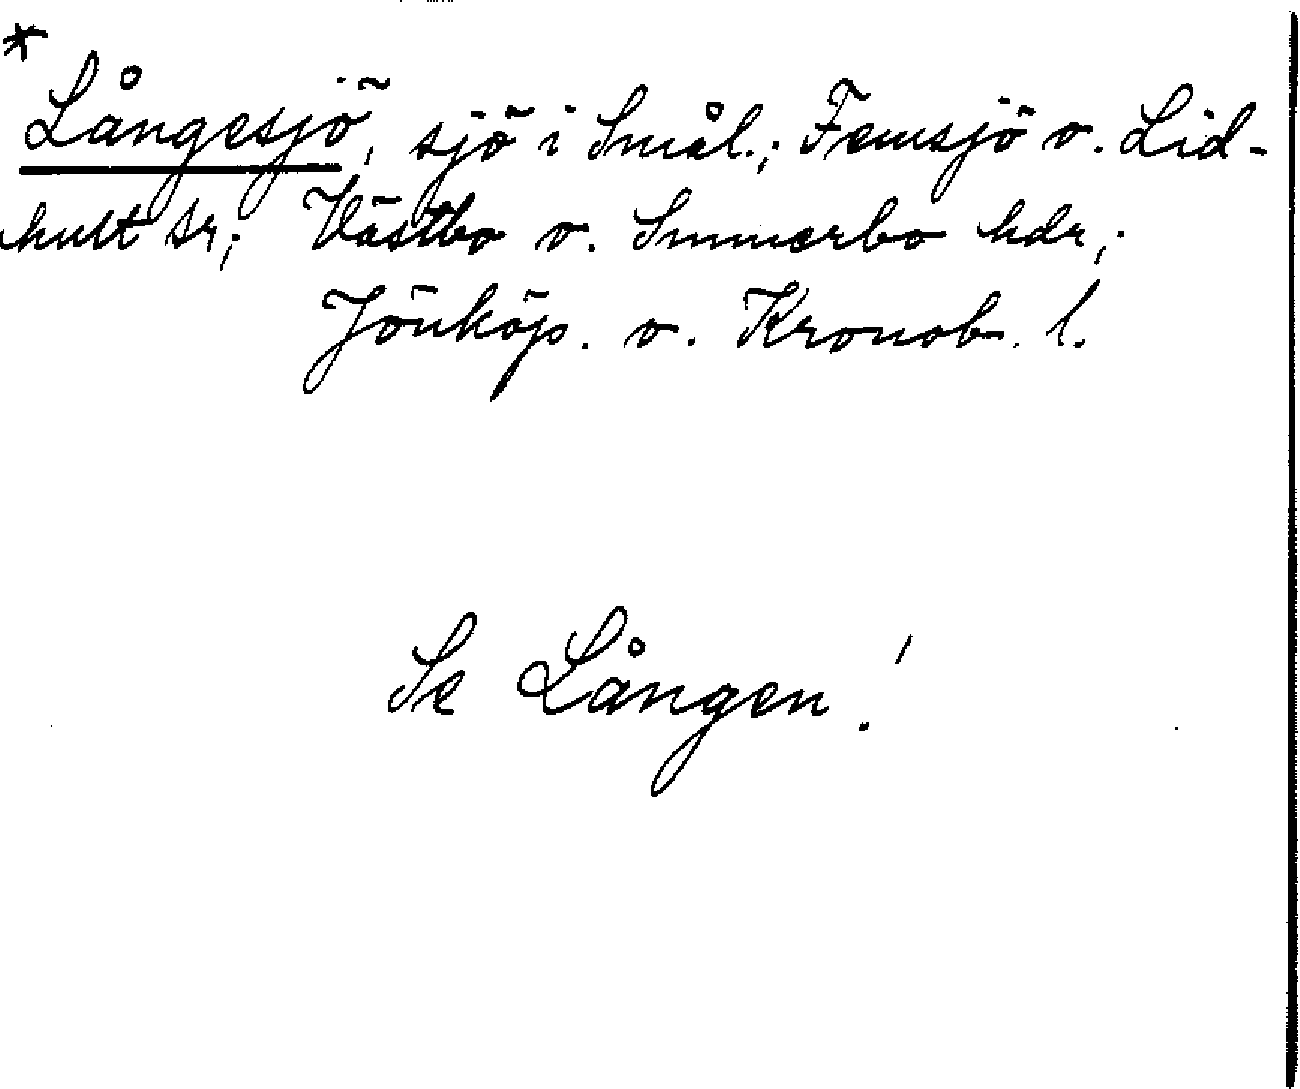 * Långesjö, sjö i Smål.; Femsjö o. Lid-
hult sr; Västbo o. Sunnerbo hdr;
Jönköp. o. Kronob. l.
Se Lången!